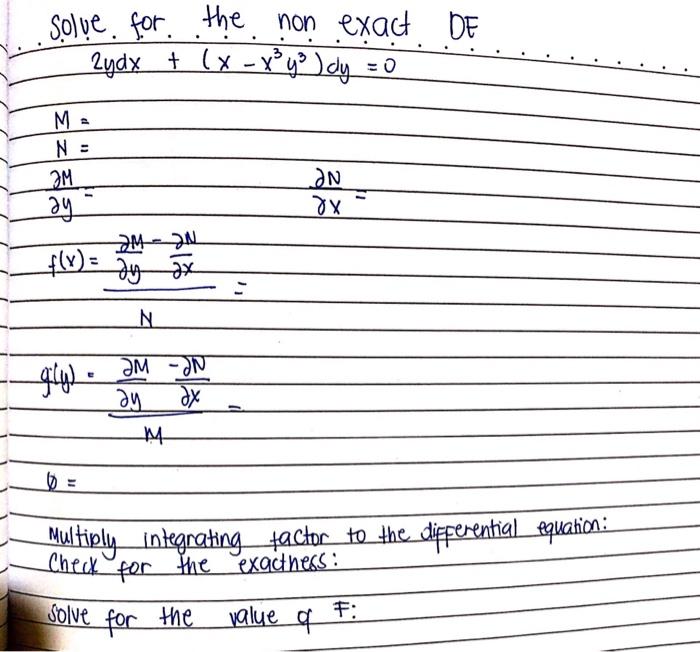 solve for the non exact DE
2ydx + (x - x³y³)dy = 0
M =
N =
∂M/∂y = ∂N/∂x =
f(x) = (∂M/∂y - ∂N/∂x)/N =
g(y) = (∂M/∂y - ∂N/∂x)/M =
ϕ =
Multiply integrating factor to the differential equation:
Check for the exactness:
Solve for the value of F: